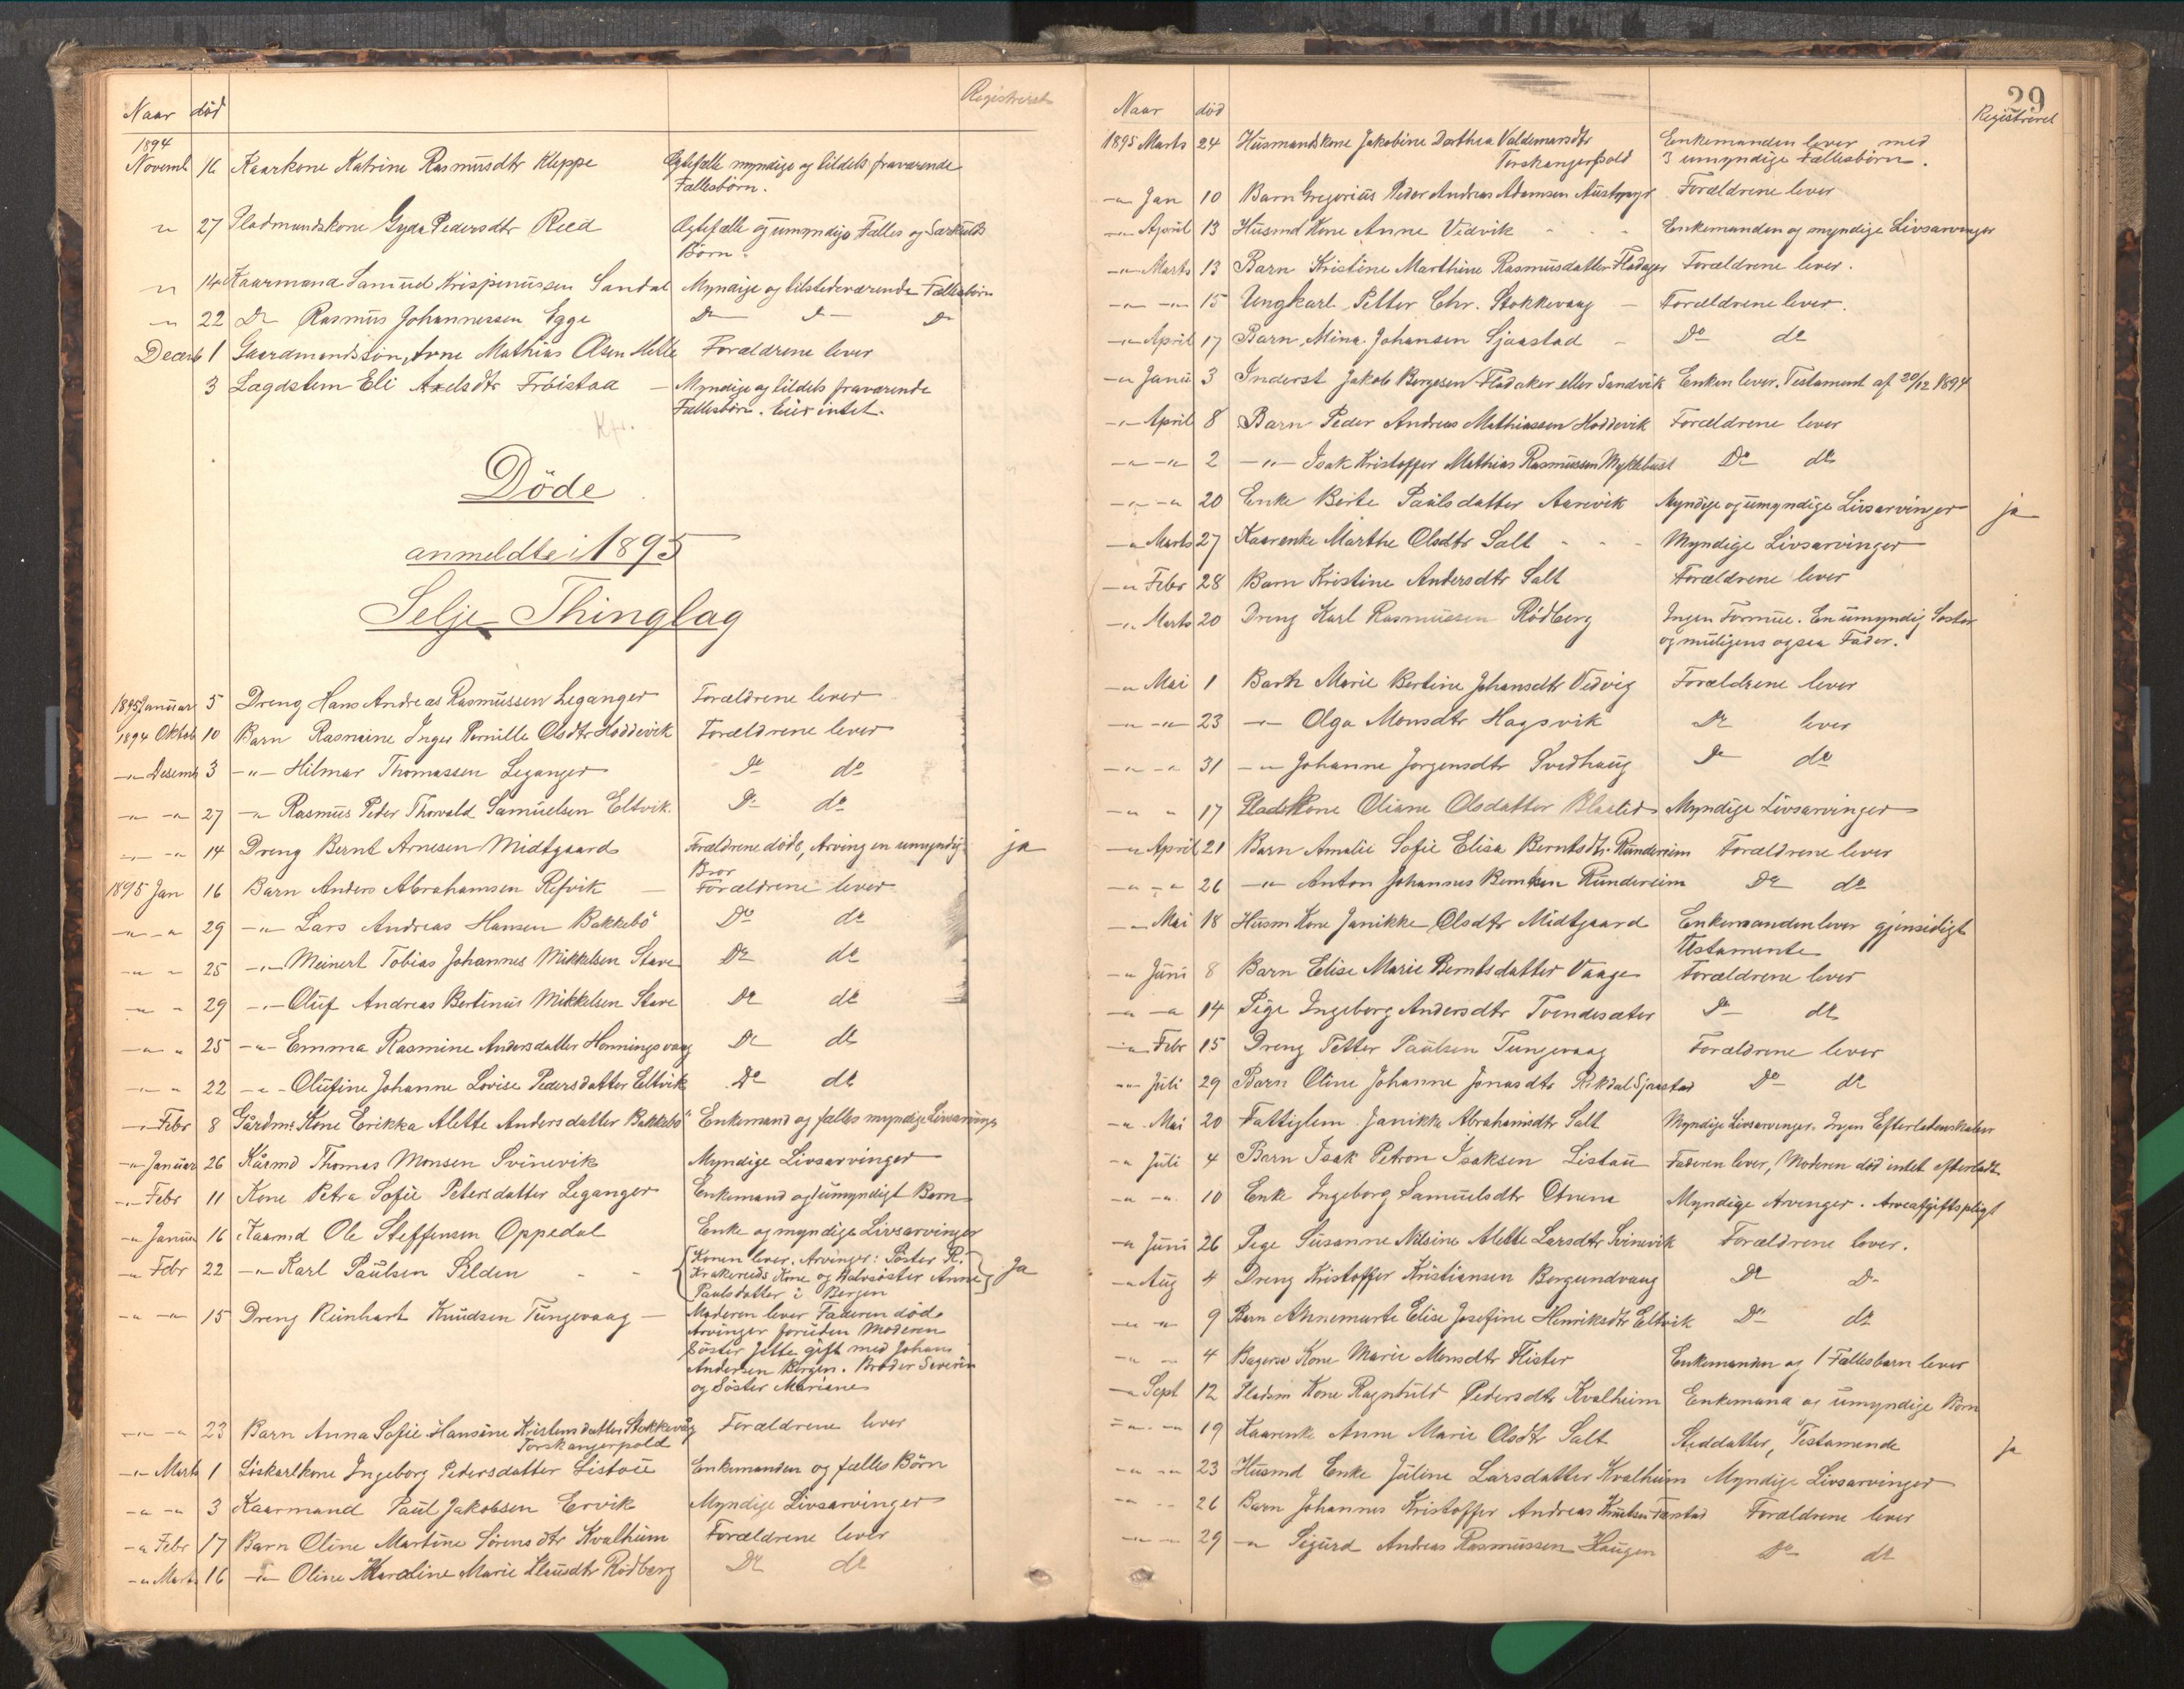 Naar død Registreret
1894
Novemb 16 Kaarkone Katrine Rasmusdtr Kleppe Egtefælle myndige og tildels fraværende
Fællesbörn.
" 27 Pladsmandskone Gyda Pedersdtr Reed Egtefælle og umyndige Fælles og Særkuld
Börn.
" 14 Kaarmand Samuel Krispinussen Sandal Myndige og tilstedeværende Fællesbörn
" 22 Do Rasmus Johannessen Egge Do Do Do
Decemb 1 Gaardmandssön, Arne Mathias Olsen Melle Forældrene lever
3 Lægdslem Eli Axelsdtr Fröistad Myndige og tildels fraværende
Fællesbörn. Eier intet.
Döde
anmeldte i 1895
Selje Thinglag
1895 Januar 5 Dreng Hans Andreas Rasmussen Leganger Forældrene lever
1894 Oktob 10 Barn Rasmine Inger Pernille Olsdtr Hoddevik Forældrene lever
-"- Desemb 3 -"- Hilmar Thomassen Leganger Do do
-"- -"- 27 -"- Rasmus Peder Thorvald Samuelsen Eltvik. Do do
-"- -"- 14 Dreng Bernt Arnesen Midtgaard Forældrene döde, Arving en umyndig ja
Bror
1895 Jan 16 Barn Anders Abrahamsen Refvik Forældrene lever
-"- -"- 29 -"- Lars Andreas Hansen Bakkebö Do do
-"- -"- 25 -"- Meinert Tobias Johannes Mikkelsen Stave Do do
-"- -"- 29 -"- Oluf Andreas Bertinus Mikkelsen Stave Do do
-"- " 25 -"- Emma Rasmine Andersdatter Honningsvaag Do do
-"- " 22 -"- Olufine Johanne Lovise Pedersdatter Eltvik Do do
-"- Febr 8 Gårdms Kone Erikka Alette Andersdatter Bakkebö Enkemand og fælles myndige Livsarvinger
-"- Januar 26 Kårmd Thomas Monsen Svinevik Myndige Livsarvinger
-"- Febr 11 Kone Petra Sofie Petersdatter Leganger Enkemand og 1 umyndigt Barn
-"- Januar 16 Kaarmd Ole Steffensen Oppedal Enke og myndige Livsarvinger
-"- Febr 22 -"- Karl Paulsen Silden Konen lever. Arvinger: Söster R. Ja
Krakereids Kone og Halvsöster Anne
Paulsdatter i Bergen
-"- -"- 15 Dreng Reinhart Knudsen Tungevaag Moderen lever Faderen död
Arvinger foruden Moderen
Söster Jette gift med Johan
Andersen Bergen. Broder Severin
og Söster Mariane
-"- -"- 23 Barn Anna Sofie Hansine Kristensdatter Stokkevåg Forældrene lever
Torskangerpold
-"- Marts 1 Löskarlkone Ingeborg Pedersdatter Listou Enkemanden og fælles Börn
-"- -"- 3 Kaarmand Paul Jakobsen Ervik Myndige Livsarvinger
-"- Febr 17 Barn Oline Martine Sörensdtr Kvalheim Forældrene lever
-"- Marts 16 -"- Oline Karoline Marie Klausdtr Rödberg Do do
29
Naar död Registreret
1895 Marts 24 Husmandskone Jakobine Dorthea Valdemarsdtr Enkemanden lever med
Torskangerpold 3 umyndige Fællesbörn.
-"- Jan 10 Barn Gregorius Peder Andreas Adamsen Forældrene lever
-"- April 13 Husmd Kone Anne Vedvik Enkemanden og myndige Livsarvinger
-"- Marts 13 Barn Kristine Marthine Rasmusdatter Forældrene lever.
-"- -"- 15 Ungkarl Petter Chr. Stokkevaag Forældrene lever.
-"- April 17 Barn Mina Johansen Sjaastad Do do
-"- Januar 3 Inderst Jakob Borgesen Fladaker eller Sandvik Enken lever. Testament af 30/12 1894
-"- April 8 Barn Peder Andreas Mathiassen Hoddevik Forældrene lever
-"- -"- 2 -"- Isak Kristoffer Mathias Rasmussen Myklebust Do do
-"- -"- 20 Enke Berte Paulsdatter Aarevik Myndige og umyndige Livsarvinger ja
-"- Marts 27 Kaarenke Marthe Olsdtr Salt Myndige Livsarvinger
-"- Febr 28 Barn Kristine Andersdtr Salt Forældrene lever
-"- Marts 20 Dreng Karl Rasmussen Rödberg Ingen Formue. En umyndig Söster
og muligens ogsaa Fader.
-"- Mai 1 Barn Marie Bertine Johansdtr Vedvig Forældrene lever
-"- -"- 23 -"- Olga Monsdtr Hagsvik Do lever
-"- -"- 31 -"- Johanne Jorgensdtr Svedhaug Do do
-"- " 17 Pladskone Oliane Olsdatter Myndige Livsarvinger
-"- April 21 Barn Amalie Sofie Elisa Berntsdtr Rundereim Forældrene lever
-"- -"- 26 -"- Anton Johannes Berntsen Rundereim Do do
-"- Mai 18 Husm Kone Janikke Olsdtr Midtgaard Enkemanden lever gjensidigt
Testamente
-"- Juni 8 Barn Elise Marie Berntsdatter Vaage Forældrene lever
-"- -"- 14 Pige Ingeborg Andersdtr Tvendesæter Do do
-"- Febr 15 Dreng Petter Paulsen Tungevaag Forældrene lever
-"- Juli 29 Barn Oline Johanne Jonasdtr Rekdal Sjaastad Do do
-"- Mai 20 Fattiglem Janikke Abrahamsdtr Salt Myndige Livsarvinger. Ingen Efterladenskaber
-"- Juli 4 Barn Isak Petron Isaksen Listau Faderen lever, Moderen död intet efterladt
-"- -"- 10 Enke Ingeborg Samuelsdtr Myndige Arvinger. Arveafgiftspligt
-"- Juni 26 Pige Susanne Nilsine Alette Larsdtr Svinevik Forældrene lever.
-"- Aug 4 Dreng Kristoffer Kristiansen Borgundvaag Do Do
-"- -"- 9 Barn Annemarte Elise Josefine Henriksdtr Eltvik Do do
-"- -"- 4 Bagers Kone Marie Monsdtr Flister Enkemanden og 1 Fællesbarn lever
-"- Sept 12 Pladsm Kone Ragnhild Pedersdtr Kvalheim Enkemand og umyndige Börn
-"- -"- 19 Kaarenke Anne Marie Olsdtr Salt Steddatter, Testamente ja
-"- -"- 23 Husmd Enke Juline Larsdatter Kvalheim Myndige Livsarvinger
-"- -"- 26 Barn Johannes Kristoffer Andreas Knutsen Forældrene lever
-"- -"- 29 -"- Sigurd Andreas Rasmussen Haugen Do do